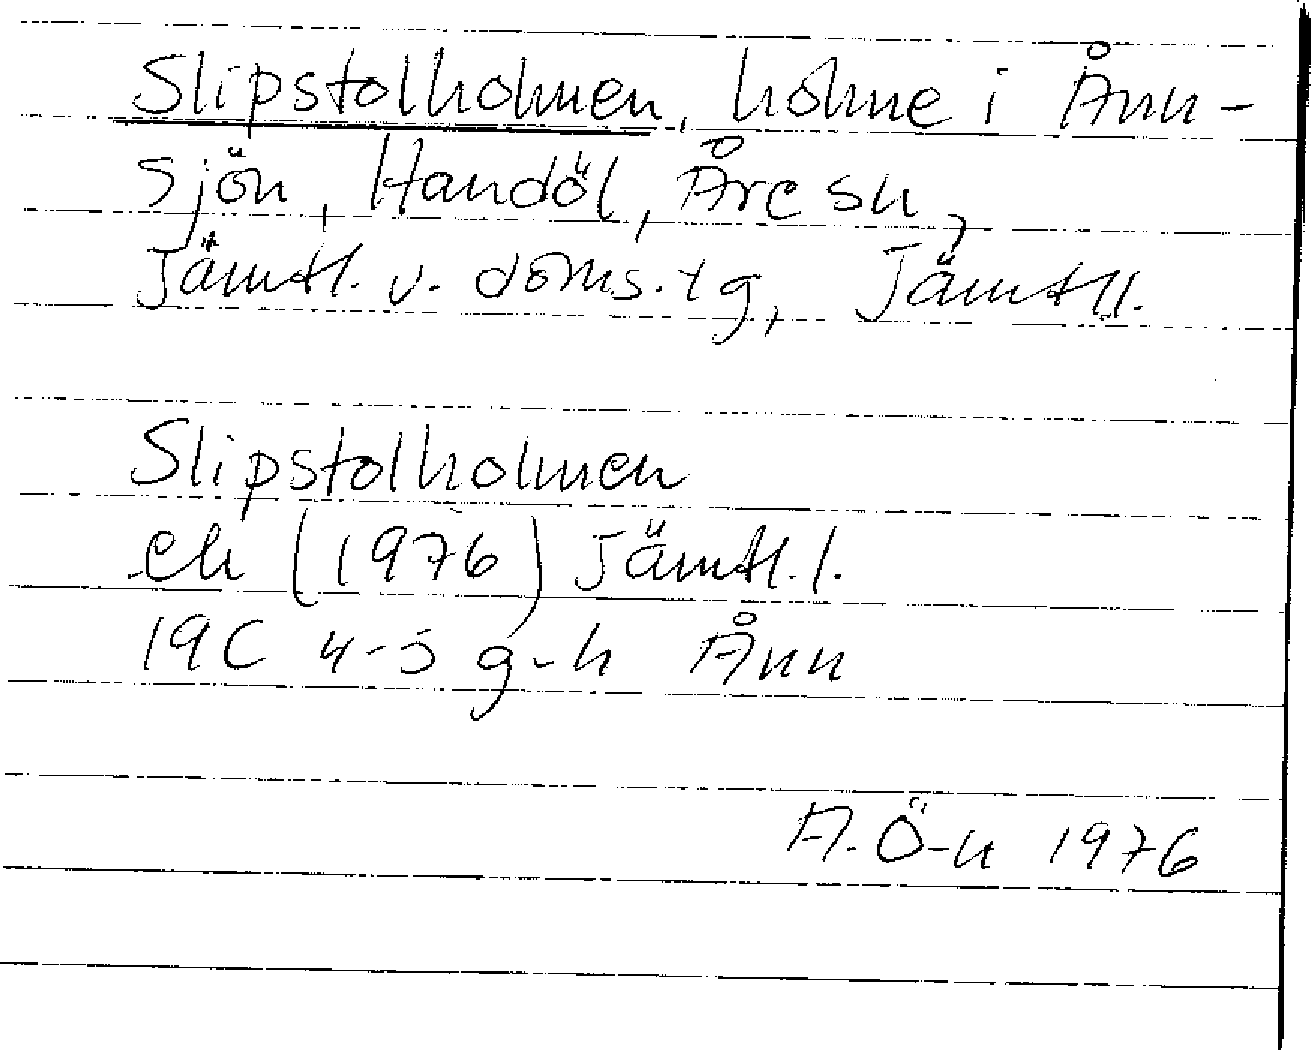 Slipstolholmen, holme i Ånn-
sjön, Handöl, Åre sn,
Jämtl. v. doms.tg, Jämtl l.
Slipstolholmen
ek (1976) Jämtl. l.
19C 4-5 g-h Ånn
A. Ö-n 1976